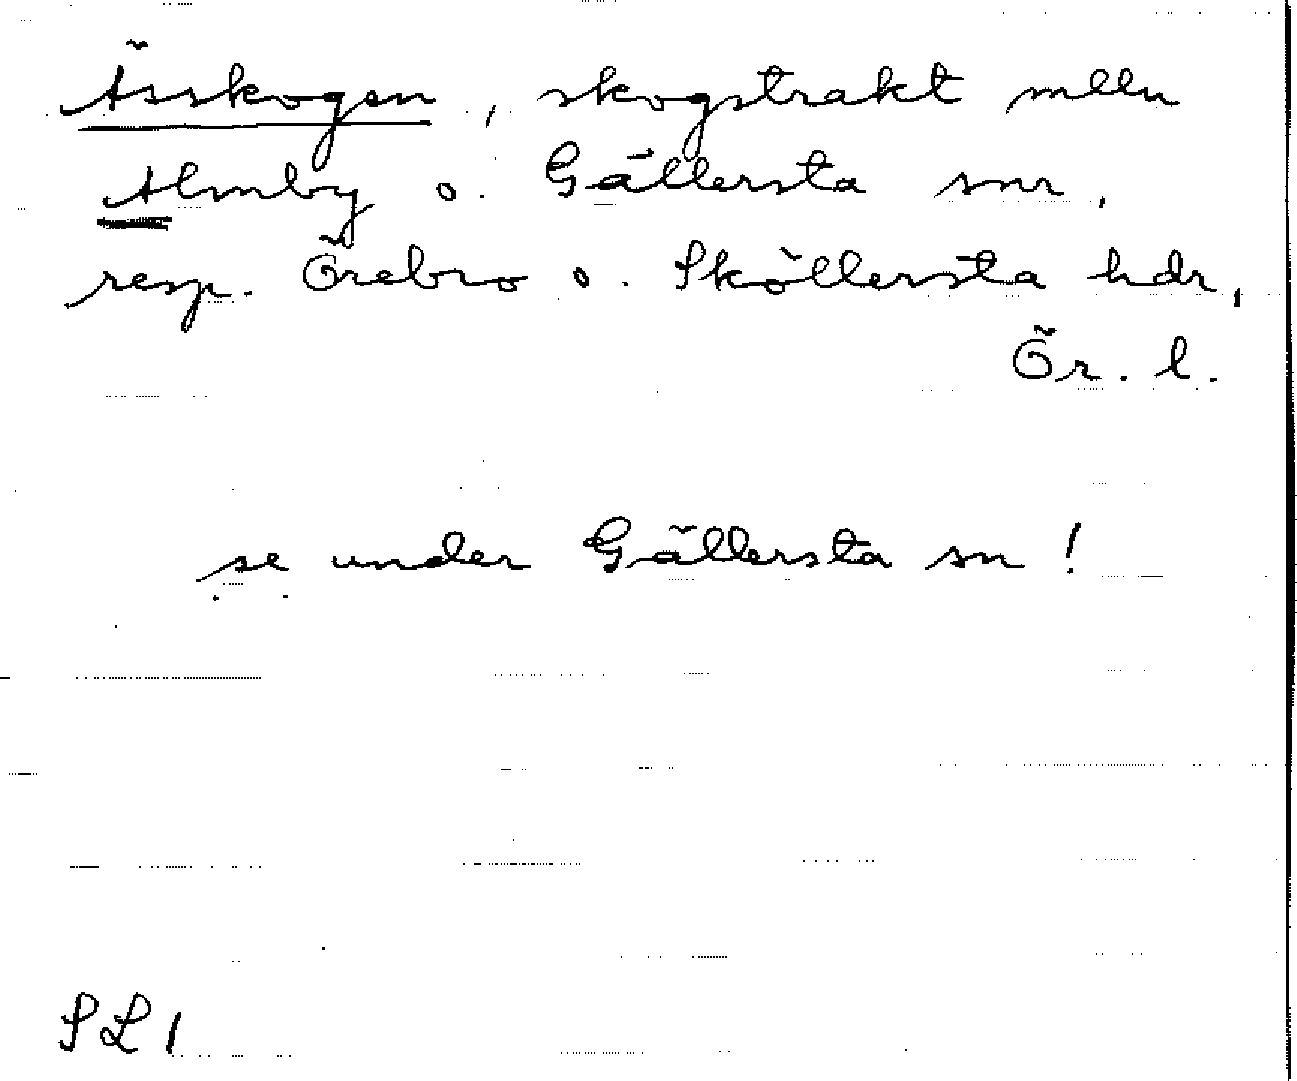 Ässkogen, skogstrakt mlln
Almby o. Gällersta snr,
resp. Örebro o. Sköllersta hdr,
Ör. l.
se under Gällersta sn!
SL 1